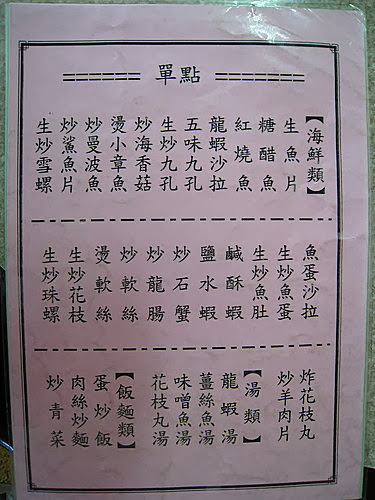 單點
【海鮮類】
生魚片
糖醋魚
紅燒魚
龍蝦沙拉
五味九孔
生炒九孔
炒海香菇
燙小章魚
炒曼波魚
炒鯊魚片
生炒雪螺
魚蛋沙拉
生炒魚蛋
生炒魚肚
鹹酥蝦
鹽水蝦
炒石蟹
炒龍腸
炒軟絲
燙軟絲
生炒花枝
生炒珠螺
炸花枝丸
炒羊肉片
【湯類】
龍蝦湯
薑絲魚湯
味噌魚湯
花枝丸湯
【飯麵類】
蛋炒飯
肉絲炒麵
炒青菜